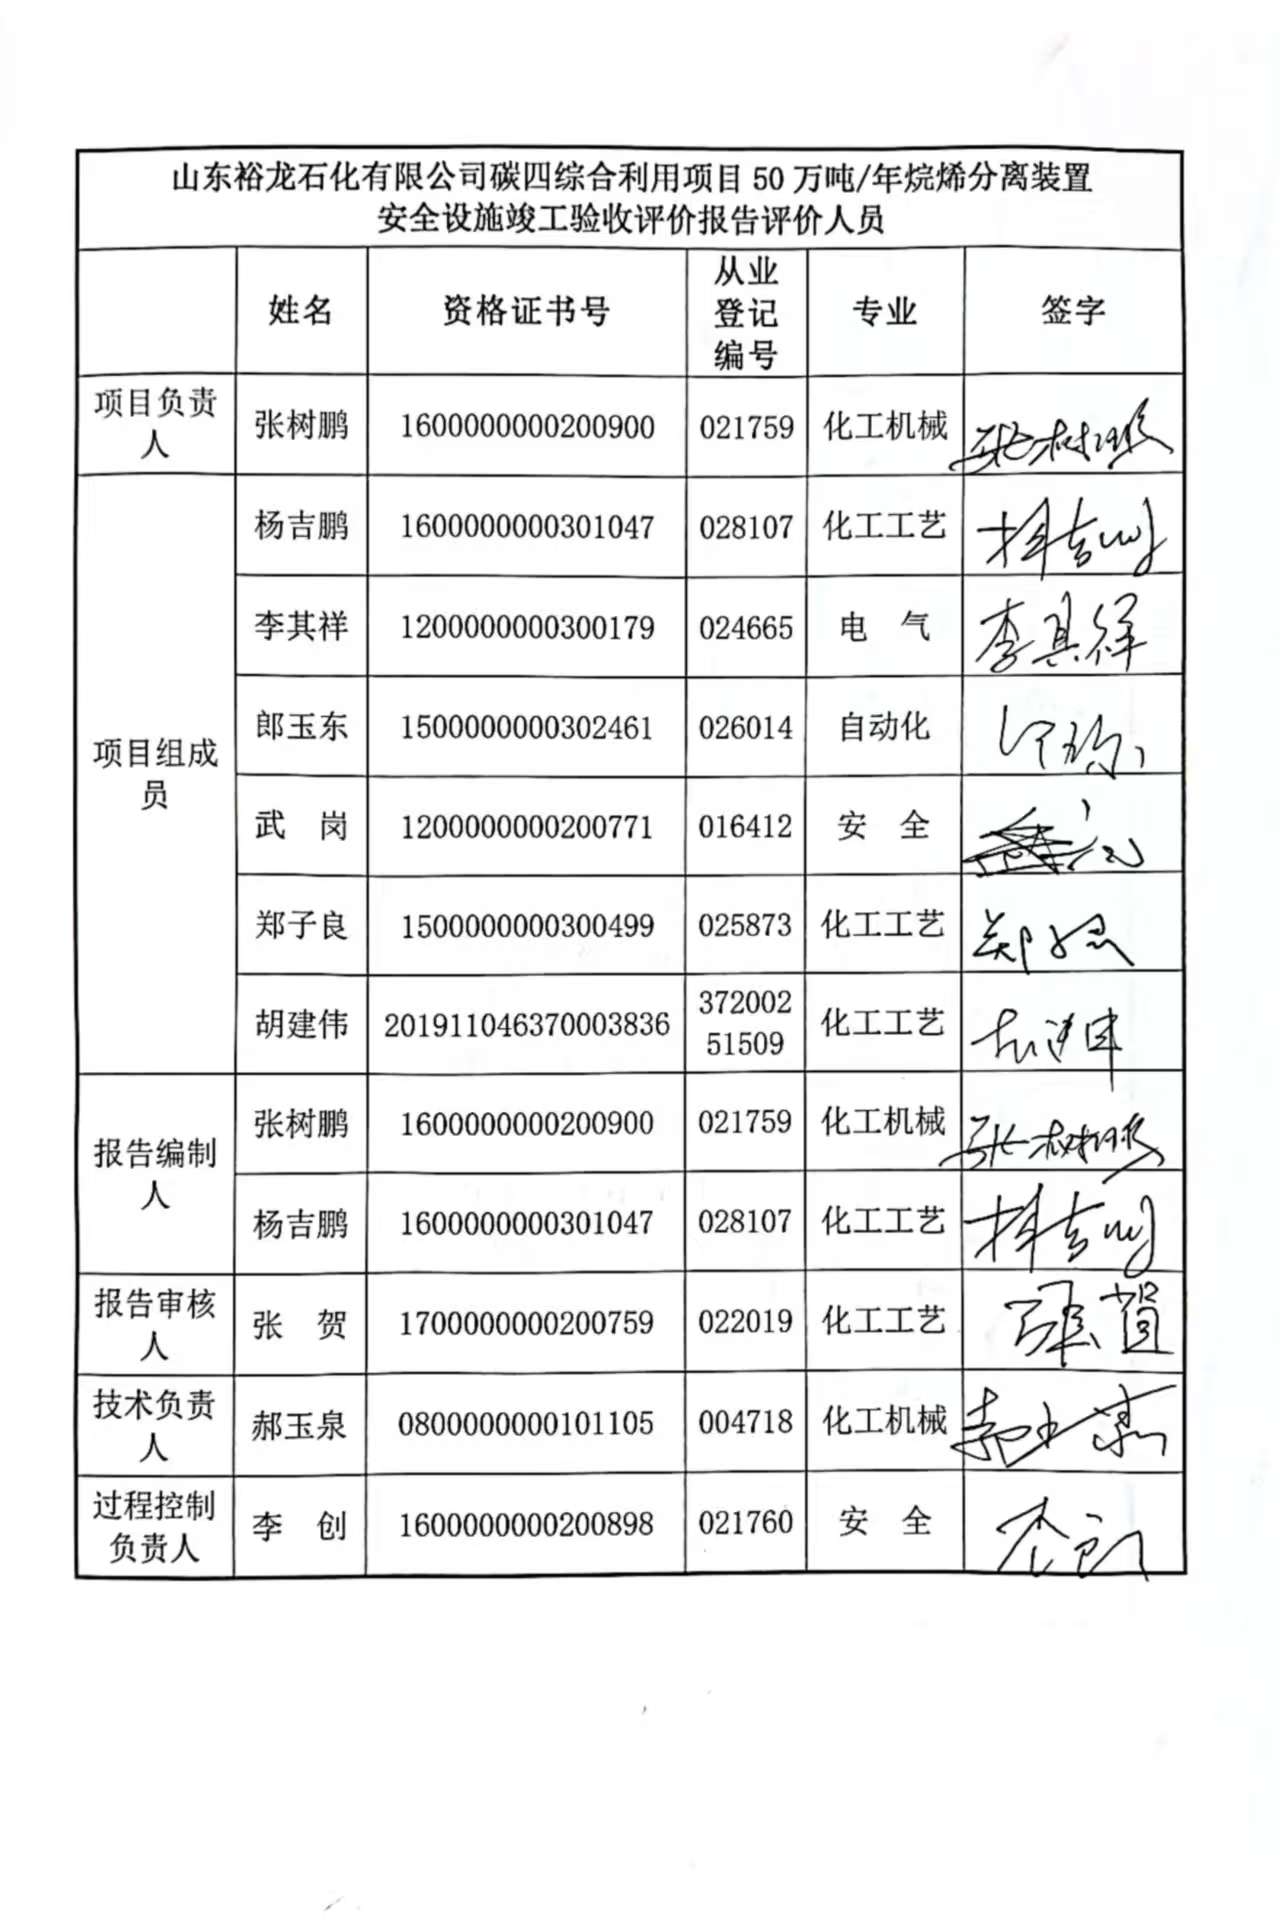 山东裕龙石化有限公司碳四综合利用项目50万吨/年烷烯分离装置
安全设施竣工验收评价报告评价人员
姓名 资格证书号 从业登记编号 专业 签字
项目负责人 张树鹏 1600000000200900 021759 化工机械 张树鹏
项目组成员 杨吉鹏 1600000000301047 028107 化工工艺 杨吉鹏
李其祥 1200000000300179 024665 电 气 李其祥
郎玉东 1500000000302461 026014 自动化
武 岗 1200000000200771 016412 安 全
郑子良 1500000000300499 025873 化工工艺 郑子良
胡建伟 201911046370003836 37200251509 化工工艺 胡建伟
报告编制人 张树鹏 1600000000200900 021759 化工机械 张树鹏
杨吉鹏 1600000000301047 028107 化工工艺 杨吉鹏
报告审核人 张 贺 1700000000200759 022019 化工工艺 张贺
技术负责人 郝玉泉 0800000000101105 004718 化工机械 郝玉泉
过程控制负责人 李 创 1600000000200898 021760 安 全 李创